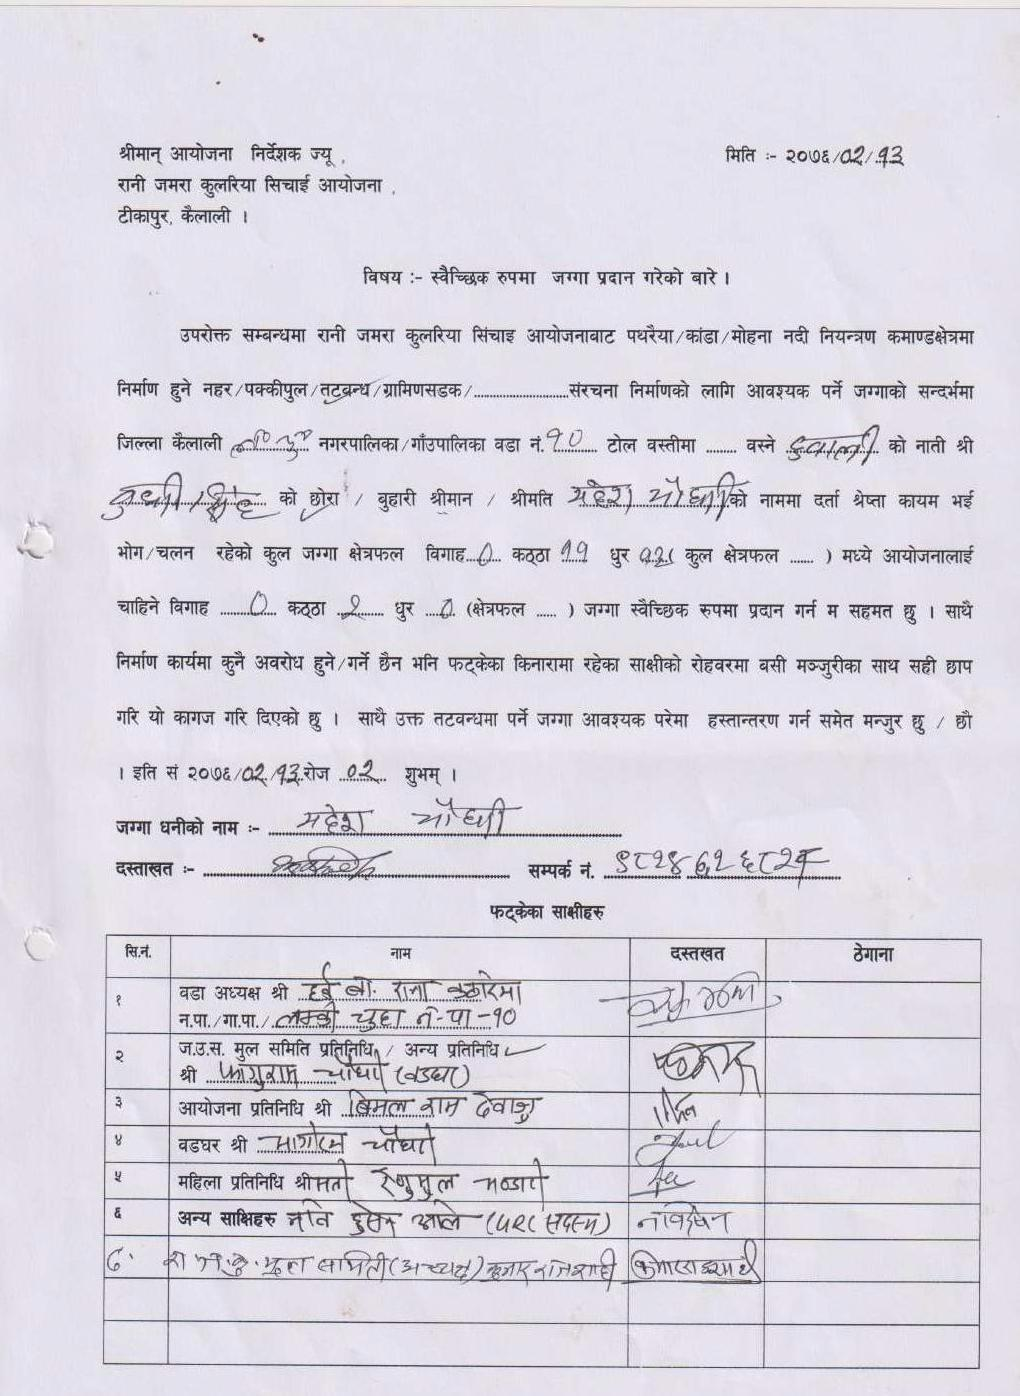 श्रीमान् आयोजना निर्देशक ज्यू ,
मिति :- २०७६/02/13
रानी जमरा कुलरिया सिचाई आयोजना ,
टीकापुर, कैलाली ।
विषय :- स्वैच्छिक रुपमा जग्गा प्रदान गरेको बारे ।
उपरोक्त सम्बन्धमा रानी जमरा कुलरिया सिंचाइ आयोजनाबाट पथरैया/कांडा/मोहना नदी नियन्त्रण कमाण्डक्षेत्रमा
निर्माण हुने नहर/पक्कीपुल/तटबन्ध/ग्रामिणसडक/......................संरचना निर्माणको लागि आवश्यक पर्ने जग्गाको सन्दर्भमा
जिल्ला कैलाली नगरपालिका/गाँउपालिका वडा नं. १० टोल वस्तीमा ....... वस्ने को नाती श्री
को छोरा / बुहारी श्रीमान / श्रीमति महेश चौधरी को नाममा दर्ता श्रेष्ता कायम भई
भोग/चलन रहेको कुल जग्गा क्षेत्रफल विगाह 0 कठ्ठा ११ धुर ( कुल क्षेत्रफल ...... ) मध्ये आयोजनालाई
चाहिने विगाह 0 कठ्ठा 2 धुर 0 (क्षेत्रफल ..... ) जग्गा स्वैच्छिक रुपमा प्रदान गर्न म सहमत छु । साथै
निर्माण कार्यमा कुनै अवरोध हुने/गर्ने छैन भनि फट्केका किनारामा रहेका साक्षीको रोहवरमा बसी मञ्जुरीका साथ सही छाप
गरि यो कागज गरि दिएको छु । साथै उक्त तटवन्धमा पर्ने जग्गा आवश्यक परेमा हस्तान्तरण गर्न समेत मन्जुर छु / छौ
। इति सं २०७६/02/13 रोज 02 शुभम् ।
जग्गा धनीको नाम :- महेश चौधरी
दस्ताखत :- सम्पर्क नं.
फट्केका साक्षीहरु
सि.नं. नाम दस्तखत ठेगाना
१ वडा अध्यक्ष श्री राना
न.पा./गा.पा./ लम्की चुहा न-पा-१०
२ ज.उ.स. मुल समिति प्रतिनिधि / अन्य प्रतिनिधि
श्री फागुराम चौधरी (वडघर)
३ आयोजना प्रतिनिधि श्री बिमल राम देवाजु
४ वडघर श्री चौधरी
५ महिला प्रतिनिधि श्रीमती
६ अन्य साक्षिहरु
मूल समिती (अध्यक्ष)